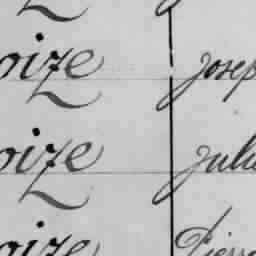 oize Josep
oize Julie
oize Pierre